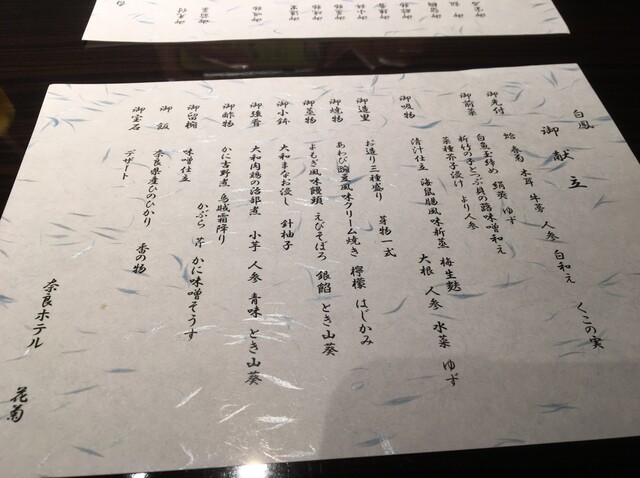 白鳳
御献立
御先付 蛤 春菊 木耳 牛蒡 人参 白和え くこの実
御前菜 白魚玉締め 絹莢 ゆず
新竹の子とつぶ貝の蕗味噌和え
菜種芥子漬け より人参
御吸物 清汁仕立 海鼠腸風味新蒸 梅生麩
大根 人参 水菜 ゆず
御造里 お造り三種盛り 芽物一式
御焼物 あわび豌豆風味クリーム焼き 檸檬 はじかみ
御蒸物 よもぎ風味饅頭 えびそぼろ 銀餡 とき山葵
御小鉢 大和まなお浸し 針柚子
御強肴 大和肉鶏の治部煮 小芋 人参 青味 とき山葵
御酢物 かに吉野煮 烏賊霜降り
かぶら 芹 かに味噌そうす
御留椀 味噌仕立
御飯 奈良県産ひのひかり 香の物
御宝石 デザート
奈良ホテル 花菊